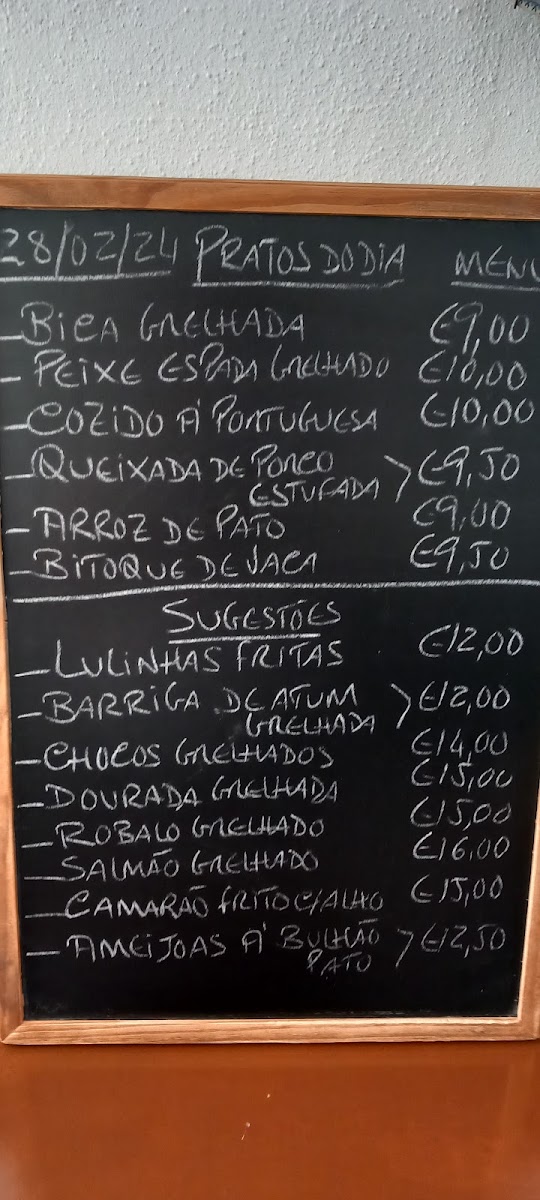 28/02/24 PRATOS DO DIA MENU
- BICA GRELHADA €9,00
- PEIXE ESPADA GRELHADO €10,00
- COZIDO Á PORTUGUESA €10,00
- QUEIXADA DE PORCO > €9,50
ESTUFADA
- ARROZ DE PATO €9,00
- BITOQUE DE VACA €9,50
SUGESTÕES
- LULINHAS FRITAS €12,00
- BARRIGA DE ATUM > €12,00
GRELHADA
- CHOCOS GRELHADOS €14,00
- DOURADA GRELHADA €15,00
- ROBALO GRELHADO €15,00
- SALMÃO GRELHADO €16.00
- CAMARÃO FRITO C/ALHO €15,00
- AMEIJOAS Á BULHÃO > €12,50
PATO